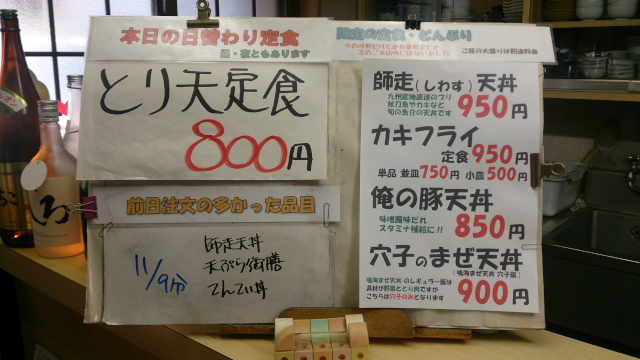 本日の日替わり定食
昼・夜ともあります
とり天定食
800円
前日注文の多かった品目
11/9分
師走天丼
天ぷら御膳
てんてい丼
限定の定食・とんぶり
ご飯の大盛りは別途料金
師走(しわす)天丼
九州産地直送のブリ
秋刀魚やカキなど
旬の魚介の天丼です
950円
カキフライ
定食950円
単品 並皿750円 小皿500円
俺の豚天丼
味噌風味だれ
スタミナ補給に!!
850円
穴子のまぜ天丼
(鳴海まぜ天丼 穴子版)
鳴海まぜ天丼 のレギュラー版は
具材が野菜ととり肉ですが
こちらは穴子のみとなります
900円